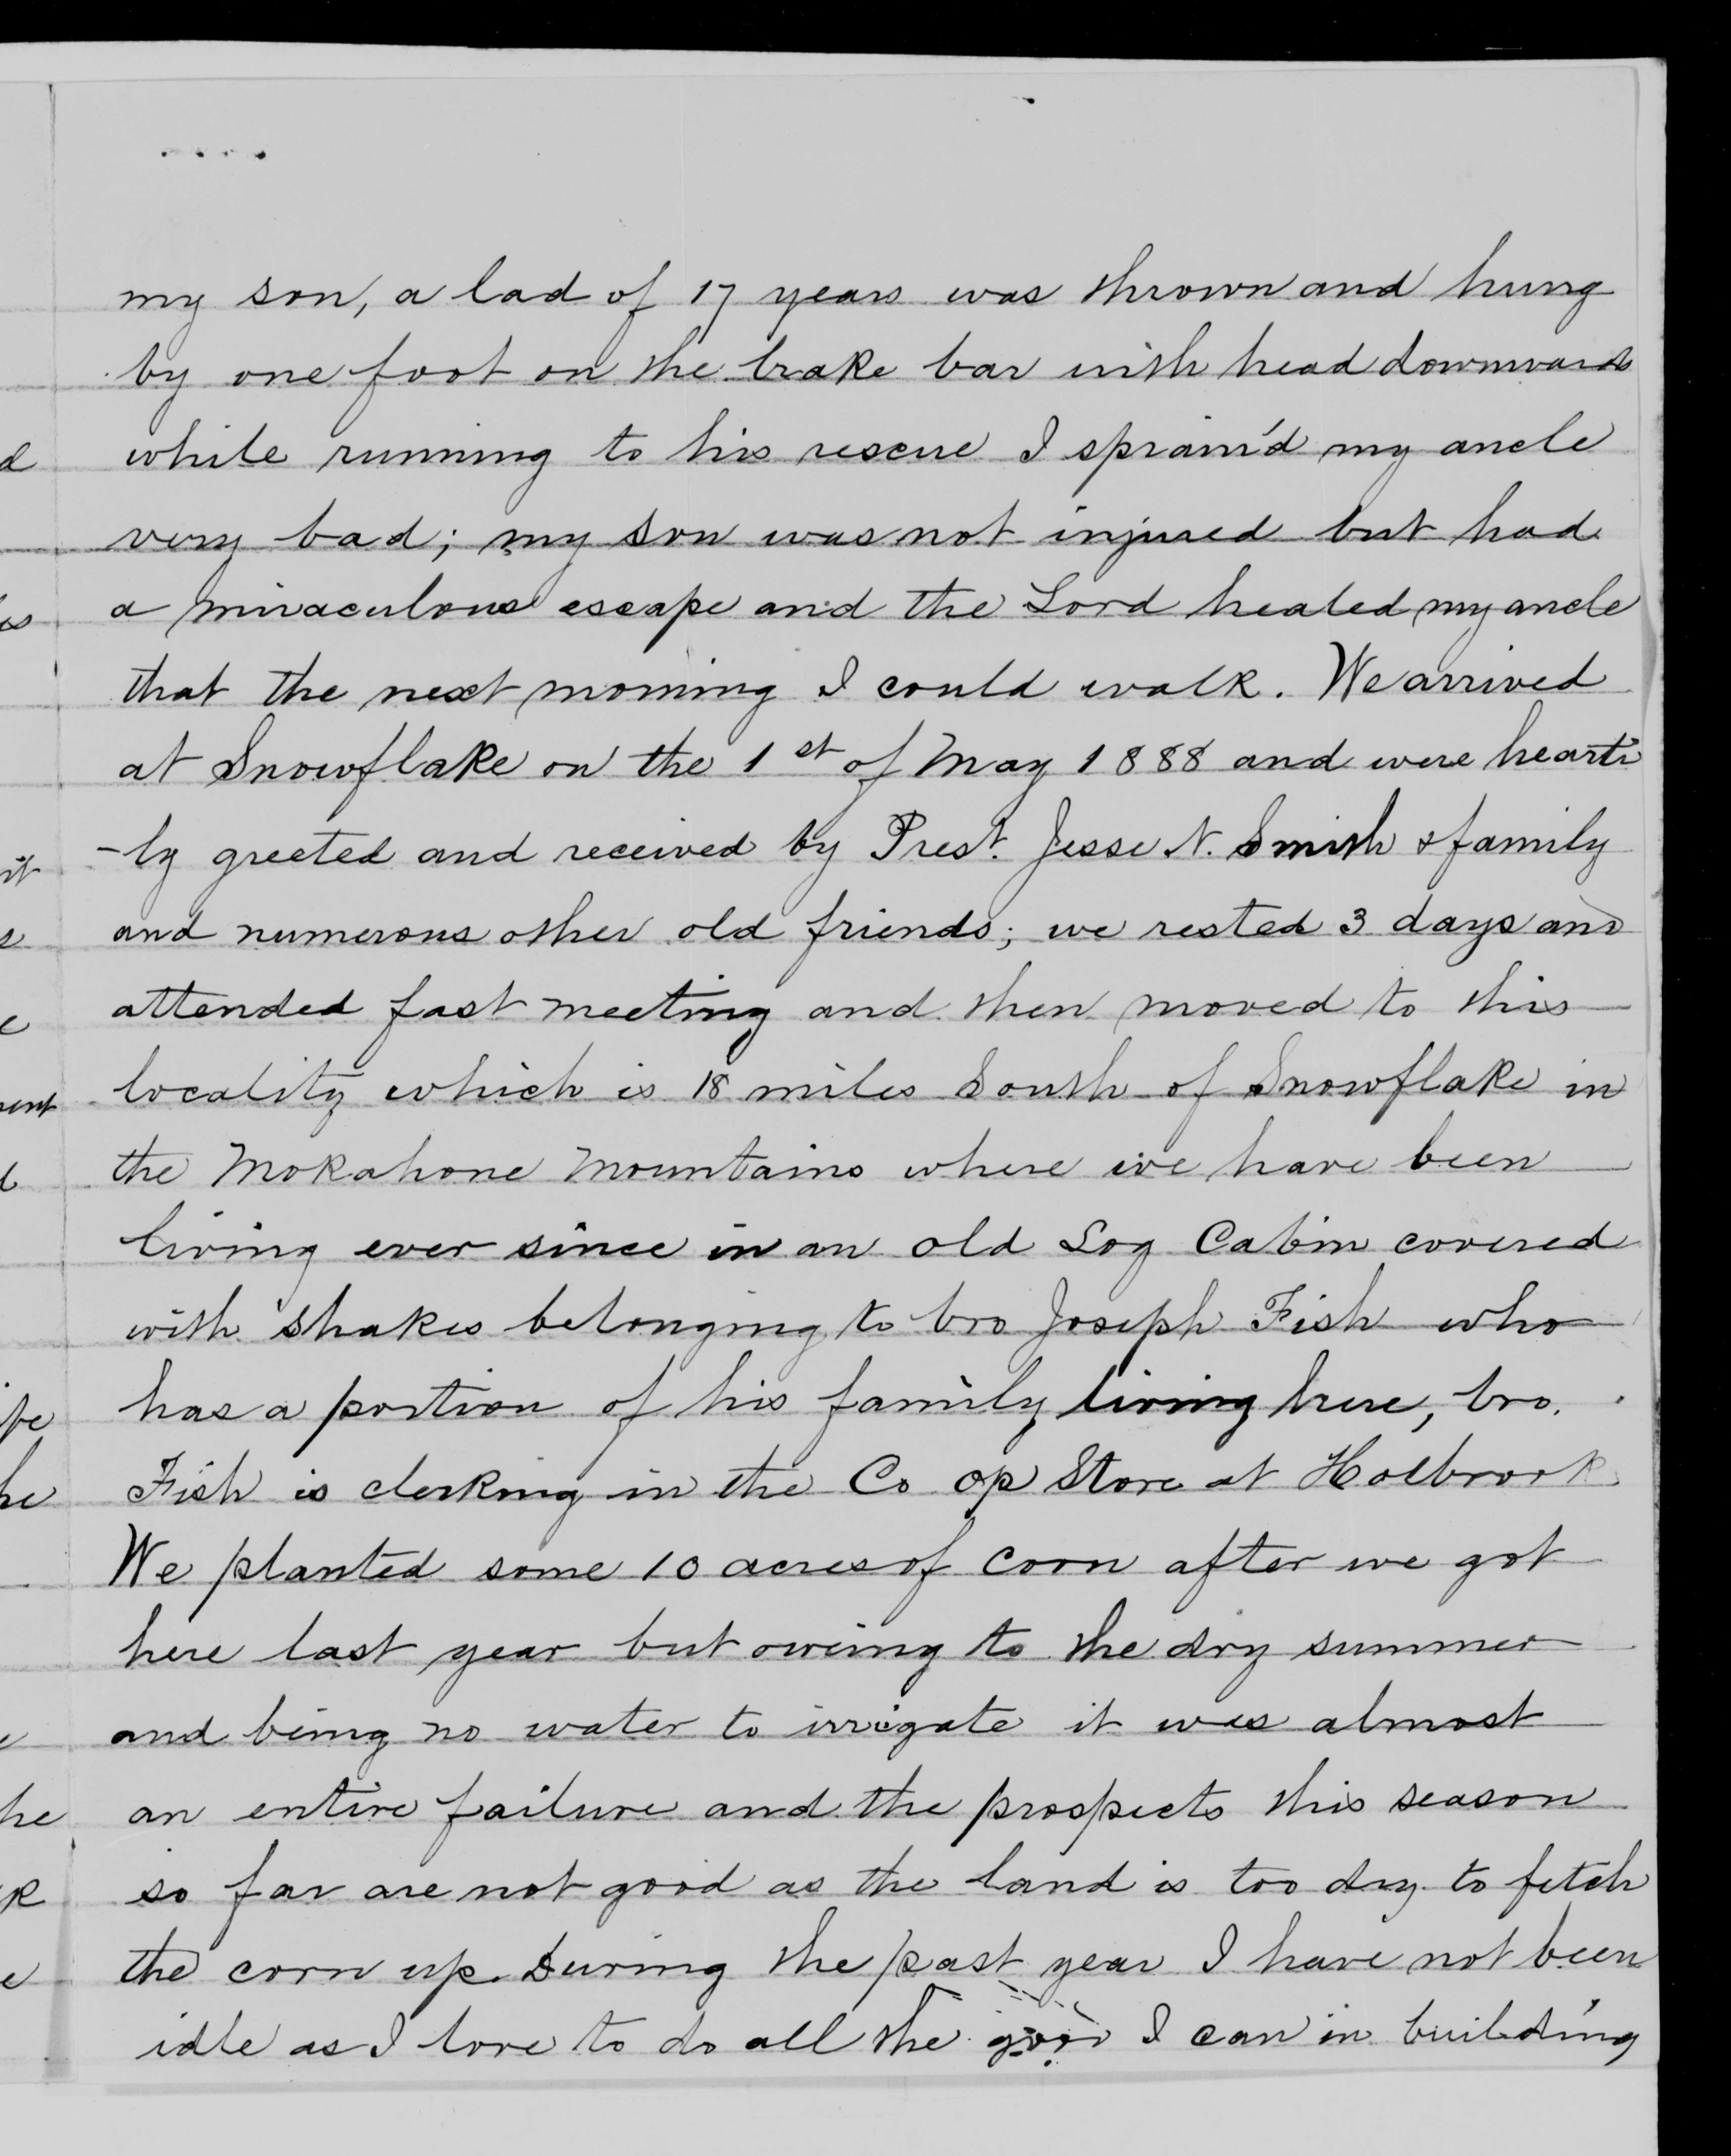 my son, a lad of 17 years was thrown and hung
by one foot on the brake bar with head downwards
while running to his rescue I sprain'd my ancle
very bad; my son was not injured but had
a miraculous escape and the Lord healed my ancle
that the next morning I could walk. We arrived
at Snowflake on the 1st of May 1888 and were hearti
-ly greeted and received by Prest. Jesse N. Smith & family
and numerous other old friends; we rested 3 days and
attended fast meeting and then moved to this
locality which is 18 miles South of Snowflake in
the Mokahone Mountains where we have been
living ever since in an old Log Cabin covered
with shakes belonging to bro Joseph Fish who
has a portion of his family living here, bro.
Fish is clerking in the Co op Store at Holbrook
We planted some 10 acres of corn after we got
here last year but owing to the dry summer
and being no water to irrigate it was almost
an entire failure and the prospects this season
so far are not good as the land is too dry to fetch
the corn up. During the past year I have not been
idle as I love to do all the good I can in building